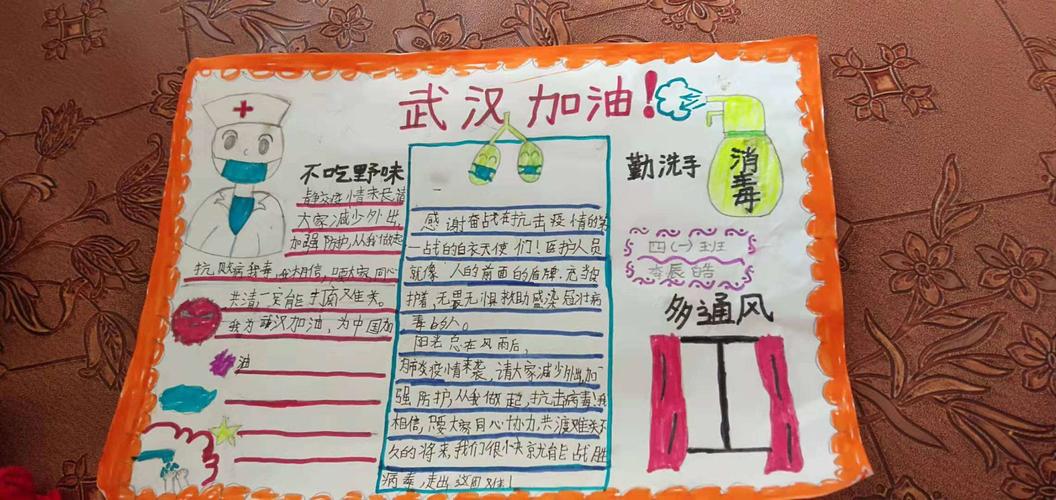 武汉加油!
不吃野味
疫情未民请
大家减少外出,
加强防护从我做起
抗病毒,我相信,大家同心
共清一定能难关。
我为武汉加油,为中国加
油
感谢奋战在抗击疫情的第
一战的白衣天使们!医护人员
就像人的前面的盾牌,
护着,无畏无惧救助感染冠状病
毒的人。
阳光总在风雨后,
肺炎疫情来袭,请大家减少外出,加
强防护,从我做起,抗击病毒!我
相信,只要大家同心协力,共渡难关不
久的将来,我们很快就能战胜
病毒,走出
勤洗手
消毒
四(一)班
李辰皓
多通风